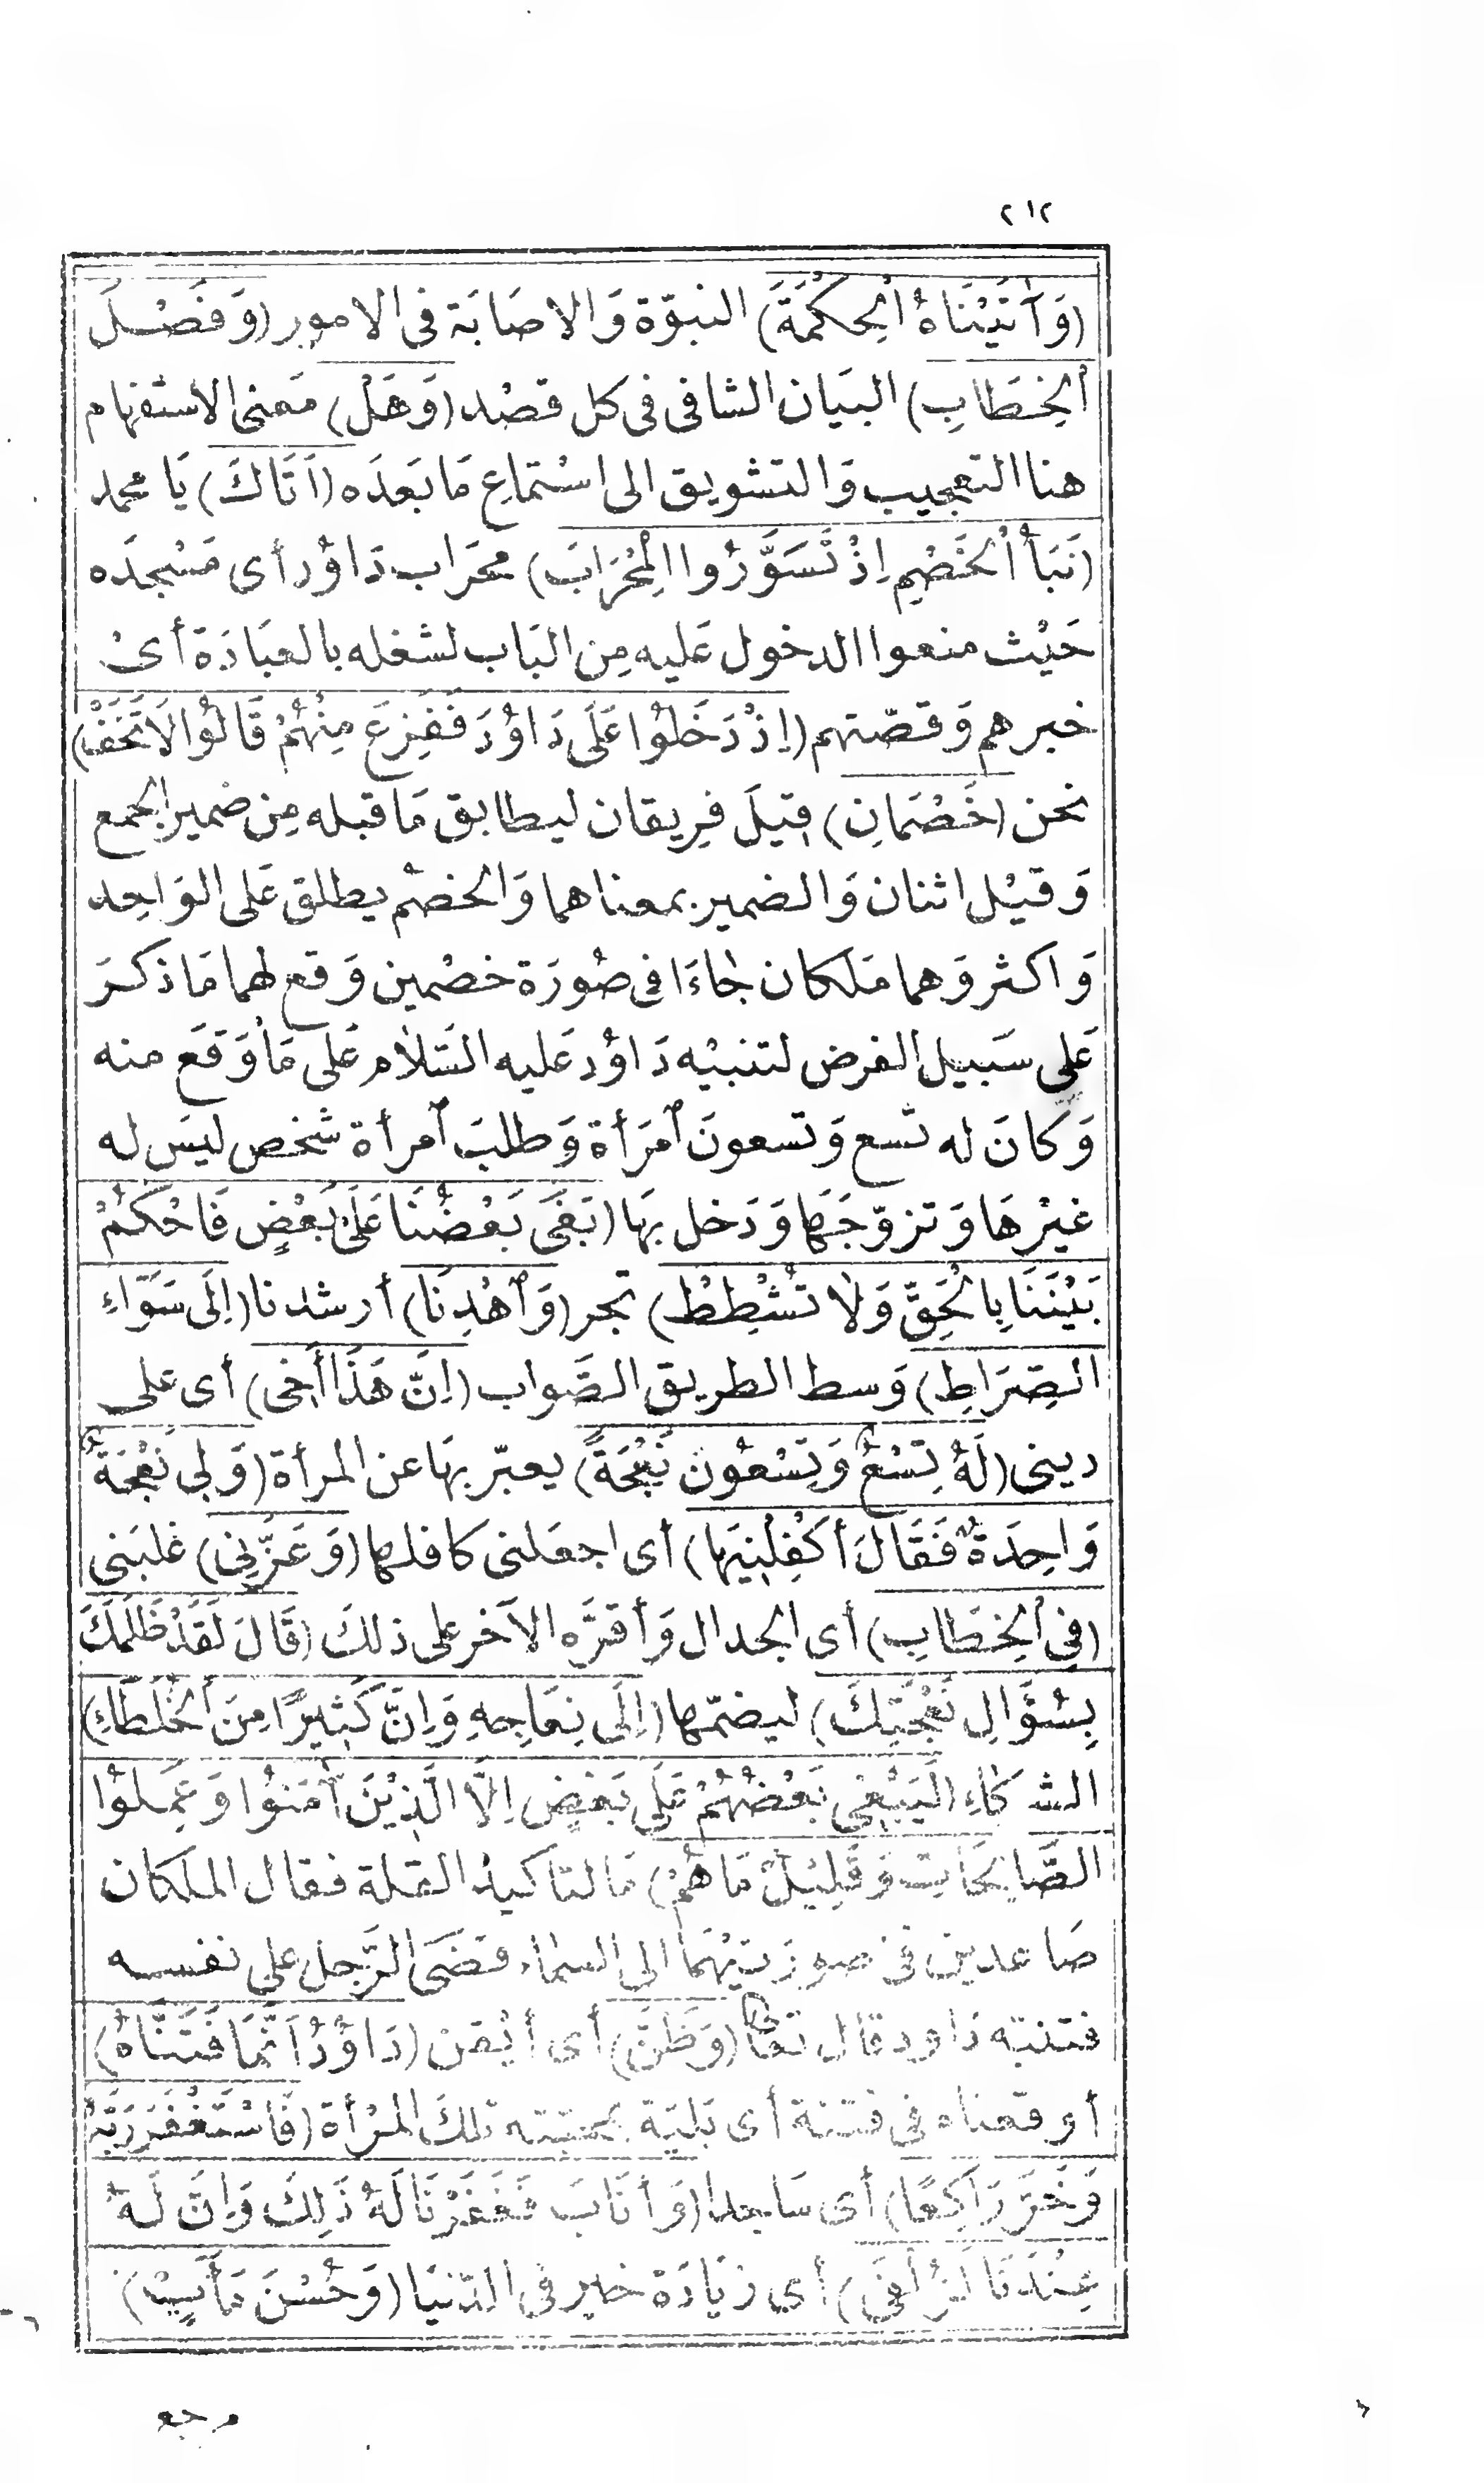 ٢١٢
(وَآتَيْنَاهُ ٱلْحِكْمَةَ) النبوّة وَالاصَابَة فى الامور (وَفَصْلَ
ٱلْخِطَابِ) البيَان الشافى فى كل قصْد (وَهَلْ) مَعنى الاستفهام
هنا التعجيب وَالتشويق الى اسْتماعِ مَا بَعدَه (اَتَاكَ) يَا محمد
(نَبَأُ ٱلْخَصْمِ اِذْ تَسَوَّرُوا الْمِحْرَابَ) محرَاب دَاوُد أى مَسْجدَه
حَيْث منعوا الدخول عَليه مِن البَاب لشغله بالعبَادَة أىْ
خبرهم وَقصّتهم (اِذْ دَخَلُوْا عَلَى دَاوُدَ فَفَزِعَ مِنْهُمْ قَالُوْا لَا تَخَفْ)
نحن (خَصْمَانِ) قيلَ فِريقان ليطابق مَا قبله مِن ضمير الجمع
وَقيْل اثنان وَالضمير بمعناهما وَالخصْم يطلق عَلى الوَاحِد
وَاكثر وَهما مَلكان جَاءَا فى صُورَة خصْمين وَقع لهما مَا ذكرَ
عَلى سَبيل الفرض لتنبيْه دَاوُد عَليه السَّلام عَلى مَا وَقَع منه
وَكانَ له تسع وَتسعونَ ٱمرَأة وَطلبَ ٱمرأة شخص ليسَ له
غيْرهَا وَتزوّجَهَا وَدَخل بهَا (بَغَى بَعْضُنَا عَلَى بَعْضٍ فَاحْكُمْ
بَيْنَنَا بِالْحَقِّ وَلَا تُشْطِطْ) تجر (وَٱهْدِنَا) أرشدنا (اِلَى سَوَاءِ
الصِّرَاطِ) وَسط الطريق الصَّواب (اِنَّ هَذَا أَخِى) أى على
دينى (لَهُ تِسْعٌ وَتِسْعُوْنَ نَعْجَةً) يعبّر بهَا عن المرأة (وَلِى نَعْجَةٌ
وَاحِدَةٌ فَقَالَ أَكْفِلْنِيهَا) أى اجعَلنى كافلها (وَعَزَّنِى) غلبَنى
(فِى ٱلْخِطَابِ) أى الجدال وَأقرَّه الآخر على ذلكَ (قَالَ لَقَدْ ظَلَمَكَ
بِسُؤَالِ نَعْجَتِكَ) ليضمّها (اِلَى نِعَاجِهِ وَاِنَّ كَثِيرًا مِنَ ٱلْخُلَطَاءِ)
الشركاءِ (لَيَبْغِى بَعْضُهُمْ عَلَى بَعْضٍ اِلَّا الَّذِيْنَ آمَنُوْا وَعَمِلُوْا
الصَّالِحَاتِ وَقَلِيْلٌ مَا هُمْ) مَا لتاكيد القلة فقال الملكان
صَاعدين فى صورَتيْهمَا الى السماء قضَى الرَّجل على نفسه
فتنبّه دَاود قال تعالى (وَظَنَّ) أى أيْقن (دَاوُدُ اَنَّمَا فَتَنَّاهُ)
أوقعناه فى فتنة أى بَليّة بمحبّته تلكَ المرْأة (فَاسْتَغْفَرَ رَبَّهُ
وَخَرَّ رَاكِعًا) أى سَاجدا (وَأَنَابَ فَغَفَرْنَا لَهُ ذَلِكَ وَاِنَّ لَهُ
عِنْدَنَا لَزُلْفَى) أى زيَادَة خير فى الدّنيَا (وَحُسْنَ مَآبٍ)
مرجع